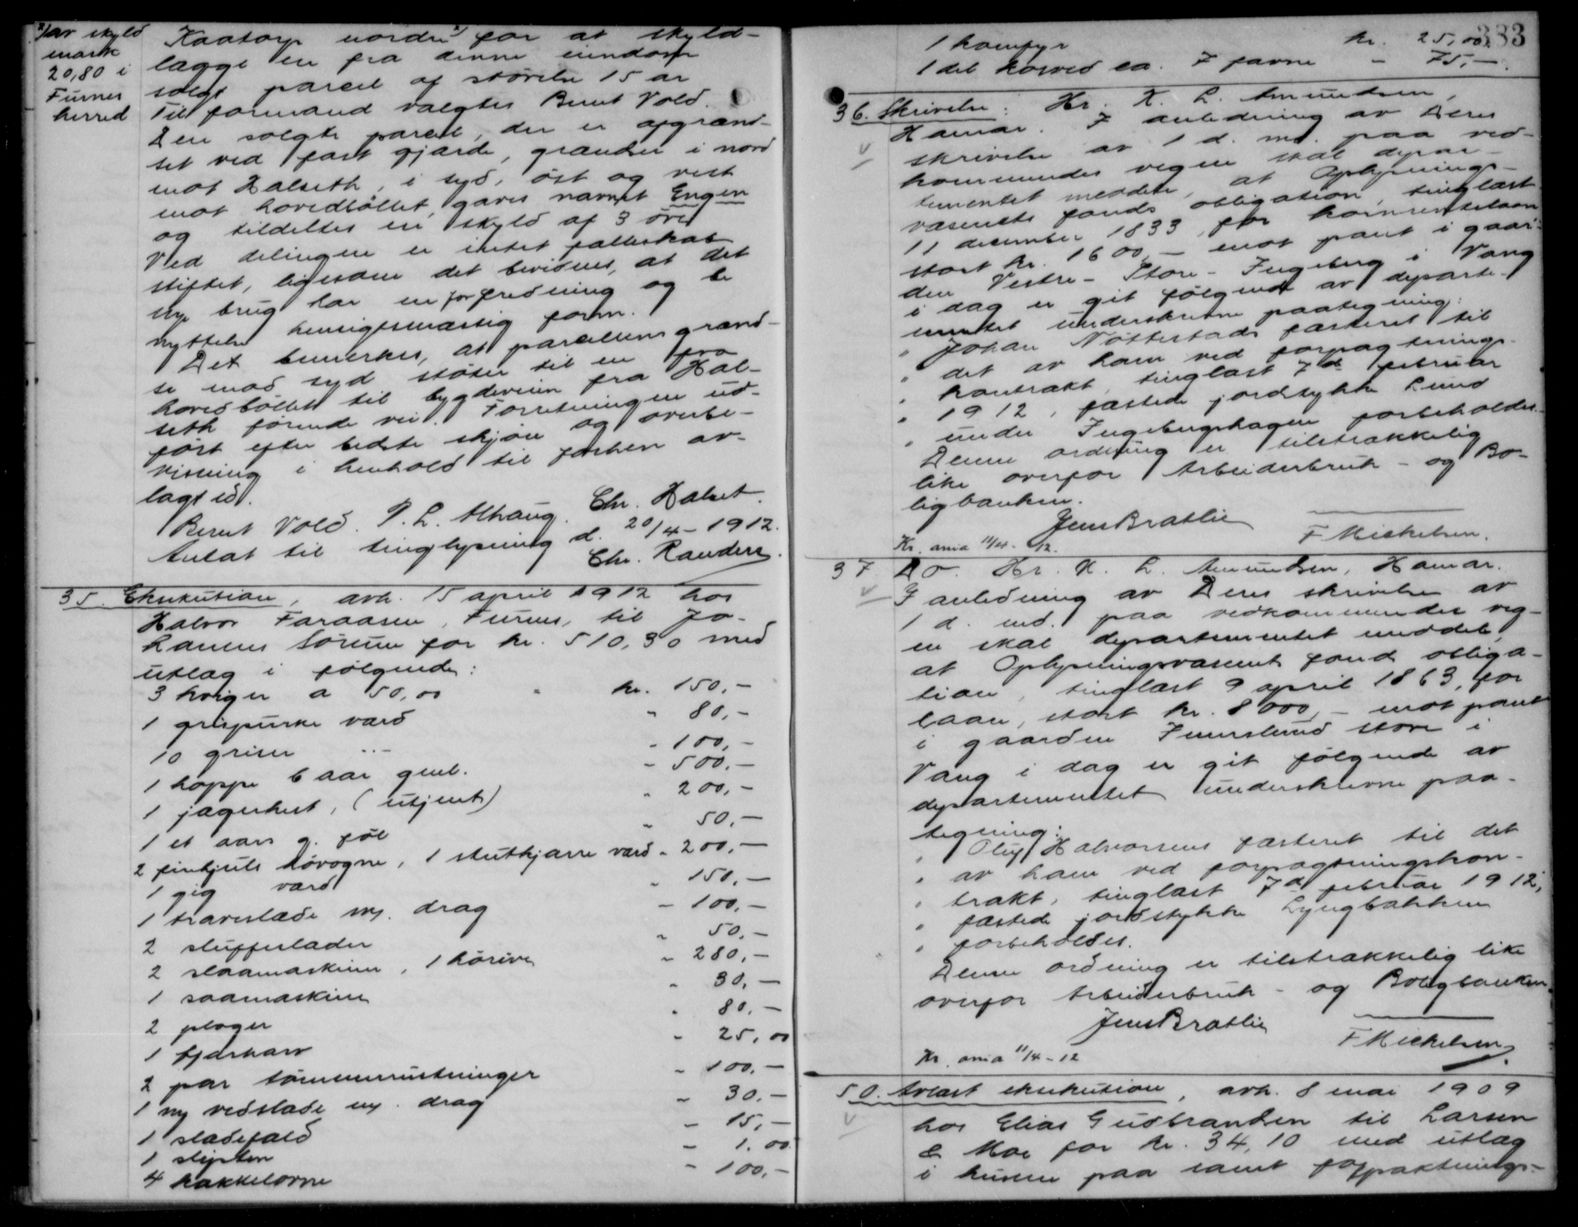 av skyld
mark
20,80 i
Furnes
herred
Kaatorp nordre for at skyld-
lægge en fra denne eiendom
solgt parcel af størrelse 15 ar
Til formand valgtes Bernt Vold.
Den solgte parcel, der er afgrænd-
set ved fast gjærde, grændser i nord
mot Halseth, i syd, øst og vest
mot hovedbøllet, gaves navnet Engen
og tildeltes en skyld af 3 øre
Ved delingen er intet fælleskab
stiftet, ligesom det bevidnes, at det
nye brug har en for fredning og be
nyttelse hensigtsmæssig form.
Det bemerkes, at parcellens grænd-
se mod syd støter til en fra
hovedbøllet til bygdeveien fra Hal-
seth førende vei. Forretningen ud-
ført efter bedste skjøn og overbe-
visning i henhold til forhen av-
lagt ed.
Bernt Vold. P. L. Alhaug. Chr. Halset.
Antat til tinglysning d. 20/4-1912.
Chr. Randers.
35. Eksekution, avh. 15 april 1912 hos
Halvor Faraasen, Furnes, til Jo-
hannes Sørum for kr. 510,30 med
utlæg i følgende:
3 kviger a 50,00 kr. 150,-
1 grisepurke værd " 80,-
10 griser " - 100,-
1 hoppe 6 aar gml. - 500,-
1 jagerhest, (utjent) " 200,-
1 et aars g. føl " 50,-
2 firehjuls høvogne, 1 stutkjærre værd - 200,-
1 gig værd " 150,-
1 traveslæde m. drag - 100,-
2 sluffeslæder " 50,-
2 slaamaskiner, 1 hørive " 280,-
1 saamaskine " 30,-
2 ploger " 80,-
1 fjærharv - 25,00
2 par tømmerrustninger - 100,-
1 ny vedslæde m. drag - 30,-
1 slædefald - 15,-
1 slipsten - 1.00
4 kakkelovne - 100,-
383
1 komfyr kr. 25,00
1 del kasved ca. 7 favne - 75,-
36. Skrivelse: Hr. K. L. Amundsen,
Hamar. I anledning av Deres
skrivelse av 1 d. md. paa ved-
kommendes vegne skal depar-
tementet meddele, at Oplysnings-
væsenets fonds obligation, tinglæst
11 december 1833, for kornrentelaan
stort kr. 1600,- mot pant i gaar-
den Vestre-Store-Ingeberg i Vang
i dag er git følgende av departe-
mentet underskrevne paategning:
" Johan Nøttestads fæsteret til
" det av ham ved forpagtnings-
" kontrakt, tinglæst 7de februar
" 1912, fæstede jordstykke Lund
" under Ingebergshagen forbeholdes.
Denne ordning er tilstrækkelig
like overfor Arbeiderbruk- og Bo-
ligbanken.
Jens Bratlie
Kr. ania 11/4-12. F Mickelsen.
37 Do. Hr. K. L. Amundsen, Hamar.
I anledning av Deres skrivelse av
1 d. md. paa vedkommendes veg-
ne skal departementet meddele,
at Oplysningsvæsenets fond obliga-
tion, tinglæst 9 april 1863, for
laan, stort kr. 8000,- mot pant
i gaarden Imerslund store i
Vang i dag er git følgende av
departementet underskrevne paa-
tegning:
" Oluf Halvorsens fæsteret til det
" av ham ved forpagtningskon-
" trakt, tinglæst 7de februar 1912,
" fæstede jordstykke Lyngbakken
" forbeholdes.
Denne ordning er tilstrækkelig like
overfor Arbeiderbruk- og Boligbanken.
Jens Bratlie
Kr. ania 11/4-12 F Mickelsen
50. Avlæst eksekution, avh. 8 mai 1909
hos Elias Gudbrandsen til Larsen
& Moe for kr. 34,10 med utlæg
i husene paa samt forpaktnings-